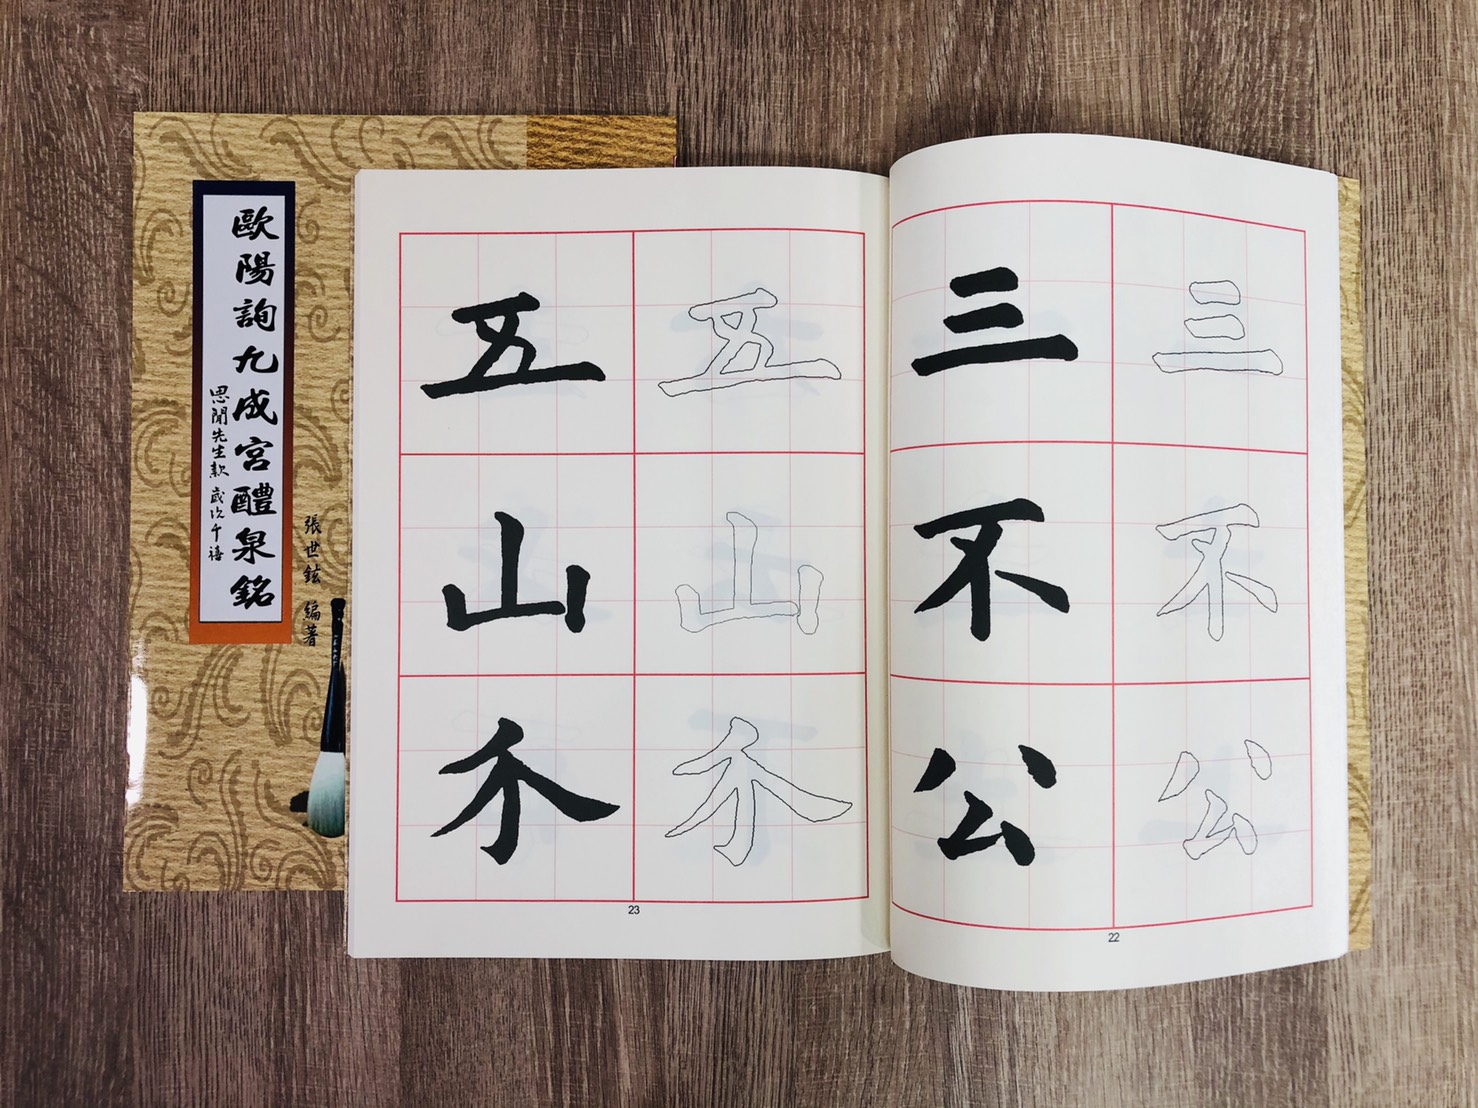 歐陽詢九成宮醴泉銘
思聞先生款 歲次千禧
張世鉉 編著
三 三
不 不
公 公
22
五 五
山 山
23